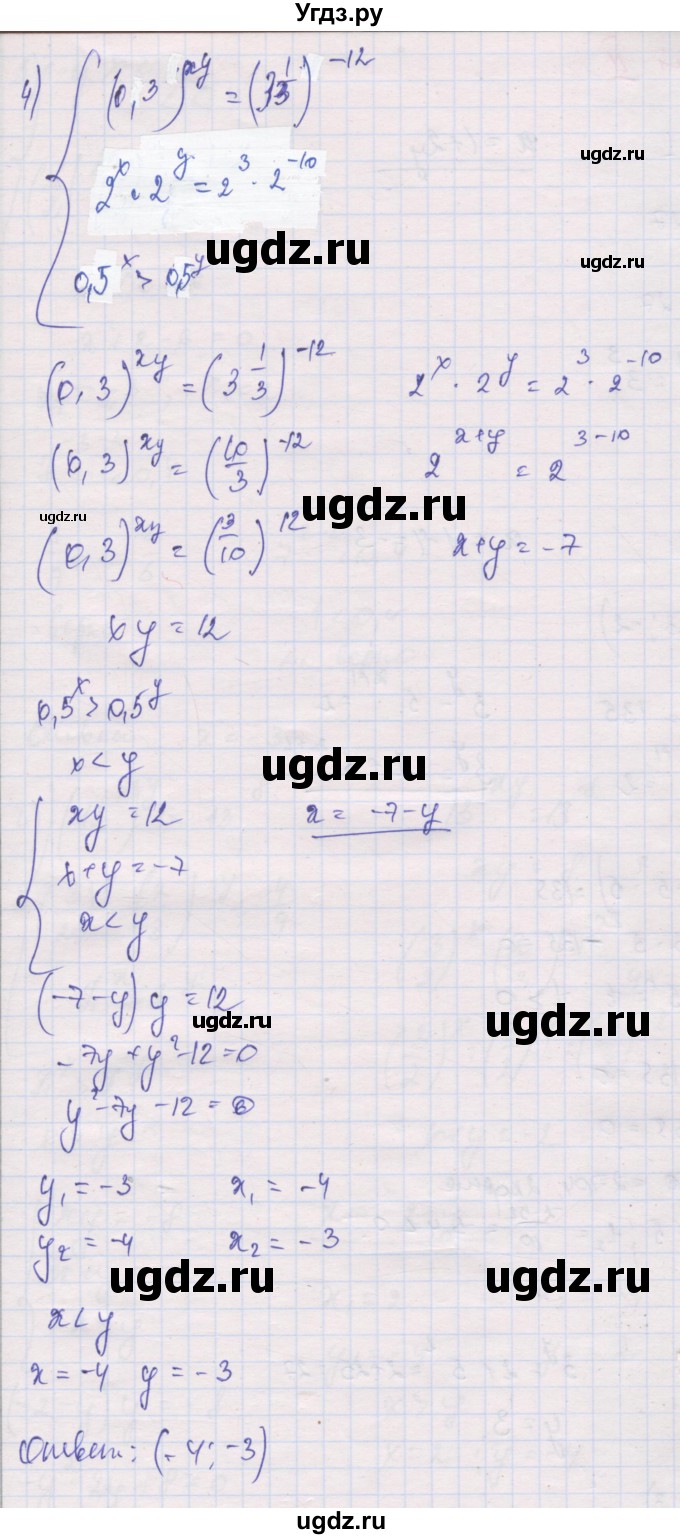 Угдз.ру
4) { (0,3)^xy = (3 1/3)^-12
ugdz.ru
2^x · 2^y = 2^3 · 2^-10
ugdz.ru
ugdz.ru
0,5^x > 0,5^y
(0,3)^xy = (3 1/3)^-12    2^x · 2^y = 2^3 · 2^-10
(0,3)^xy = (10/3)^-12    2^x+y = 2^3-10
ugdz.ru
ugdz.ru
(0,3)^xy = (3/10)^12    x+y = -7
xy = 12
0,5^x > 0,5^y
x < y
ugdz.ru
{ xy = 12    x = -7-y
x+y = -7
x < y
(-7-y) y = 12
ugdz.ru
ugdz.ru
-7y + y^2 - 12 = 0
y^2 - 7y - 12 = 0
y1 = -3    x1 = -4
y2 = -4    x2 = -3
ugdz.ru
ugdz.ru
x < y
x = -4  y = -3
Ответ: (-4; -3)
ugdz.ru